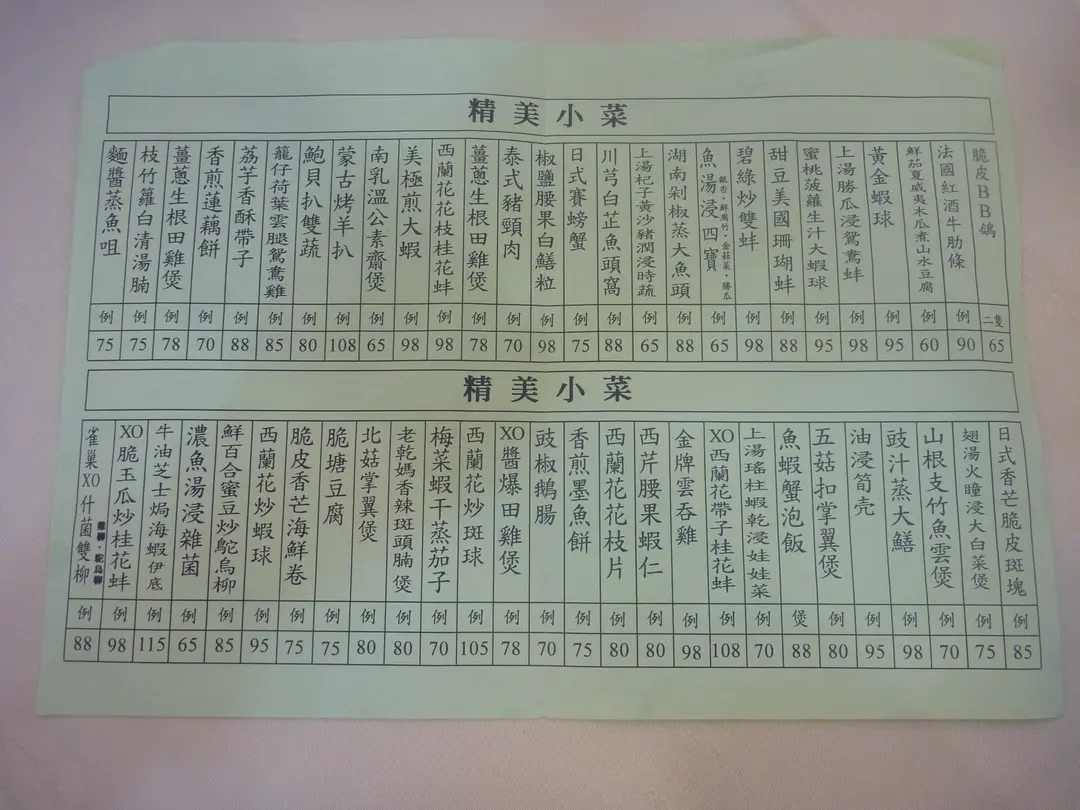 精美小菜
脆皮BB鴿 二隻 65
法國紅酒牛肋條 例 90
鮮茄夏威夷木瓜煮山水豆腐 例 60
黃金蝦球 例 95
上湯勝瓜浸鴛鴦蚌 例 98
蜜桃菠蘿生汁大蝦球 例 95
甜豆美國珊瑚蚌 例 88
碧綠炒雙蚌 例 98
魚湯浸四寶 銀杏·鮮腐竹·金菇菜·勝瓜 例 65
湖南剁椒蒸大魚頭 例 88
上湯杞子黃沙豬潤浸時蔬 例 65
川芎白芷魚頭窩 例 88
日式賽螃蟹 例 75
椒鹽腰果白鱔粒 例 98
泰式豬頸肉 例 70
薑蔥生根田雞煲 例 78
西蘭花花枝桂花蚌 例 98
美極煎大蝦 例 98
南乳溫公素齋煲 例 65
蒙古烤羊扒 例 108
鮑貝扒雙蔬 例 80
籠仔荷葉雲腿鴛鴦雞 例 85
荔芋香酥帶子 例 88
香煎蓮藕餅 例 70
薑蔥生根田雞煲 例 78
枝竹籮白清湯腩 例 75
麵醬蒸魚咀 例 75
精美小菜
日式香芒脆皮斑塊 例 85
翅湯火瞳浸大白菜煲 例 75
山根支竹魚雲煲 例 70
豉汁蒸大鱔 例 98
油浸筍壳 例 95
五菇扣掌翼煲 例 80
魚蝦蟹泡飯 煲 88
上湯瑤柱蝦乾浸娃娃菜 例 70
XO西蘭花帶子桂花蚌 例 108
金牌雲吞雞 例 98
西芹腰果蝦仁 例 80
西蘭花花枝片 例 80
香煎墨魚餅 例 75
豉椒鵝腸 例 70
XO醬爆田雞煲 例 78
西蘭花炒斑球 例 105
梅菜蝦干蒸茄子 例 70
老乾媽香辣斑頭腩煲 例 80
北菇掌翼煲 例 80
脆塘豆腐 例 75
脆皮香芒海鮮卷 例 75
西蘭花炒蝦球 例 95
鮮百合蜜豆炒鴕鳥柳 例 85
濃魚湯浸雜菌 例 65
牛油芝士焗海蝦伊底 例 115
XO脆玉瓜炒桂花蚌 例 98
雀巢XO什菌雙柳 例 88